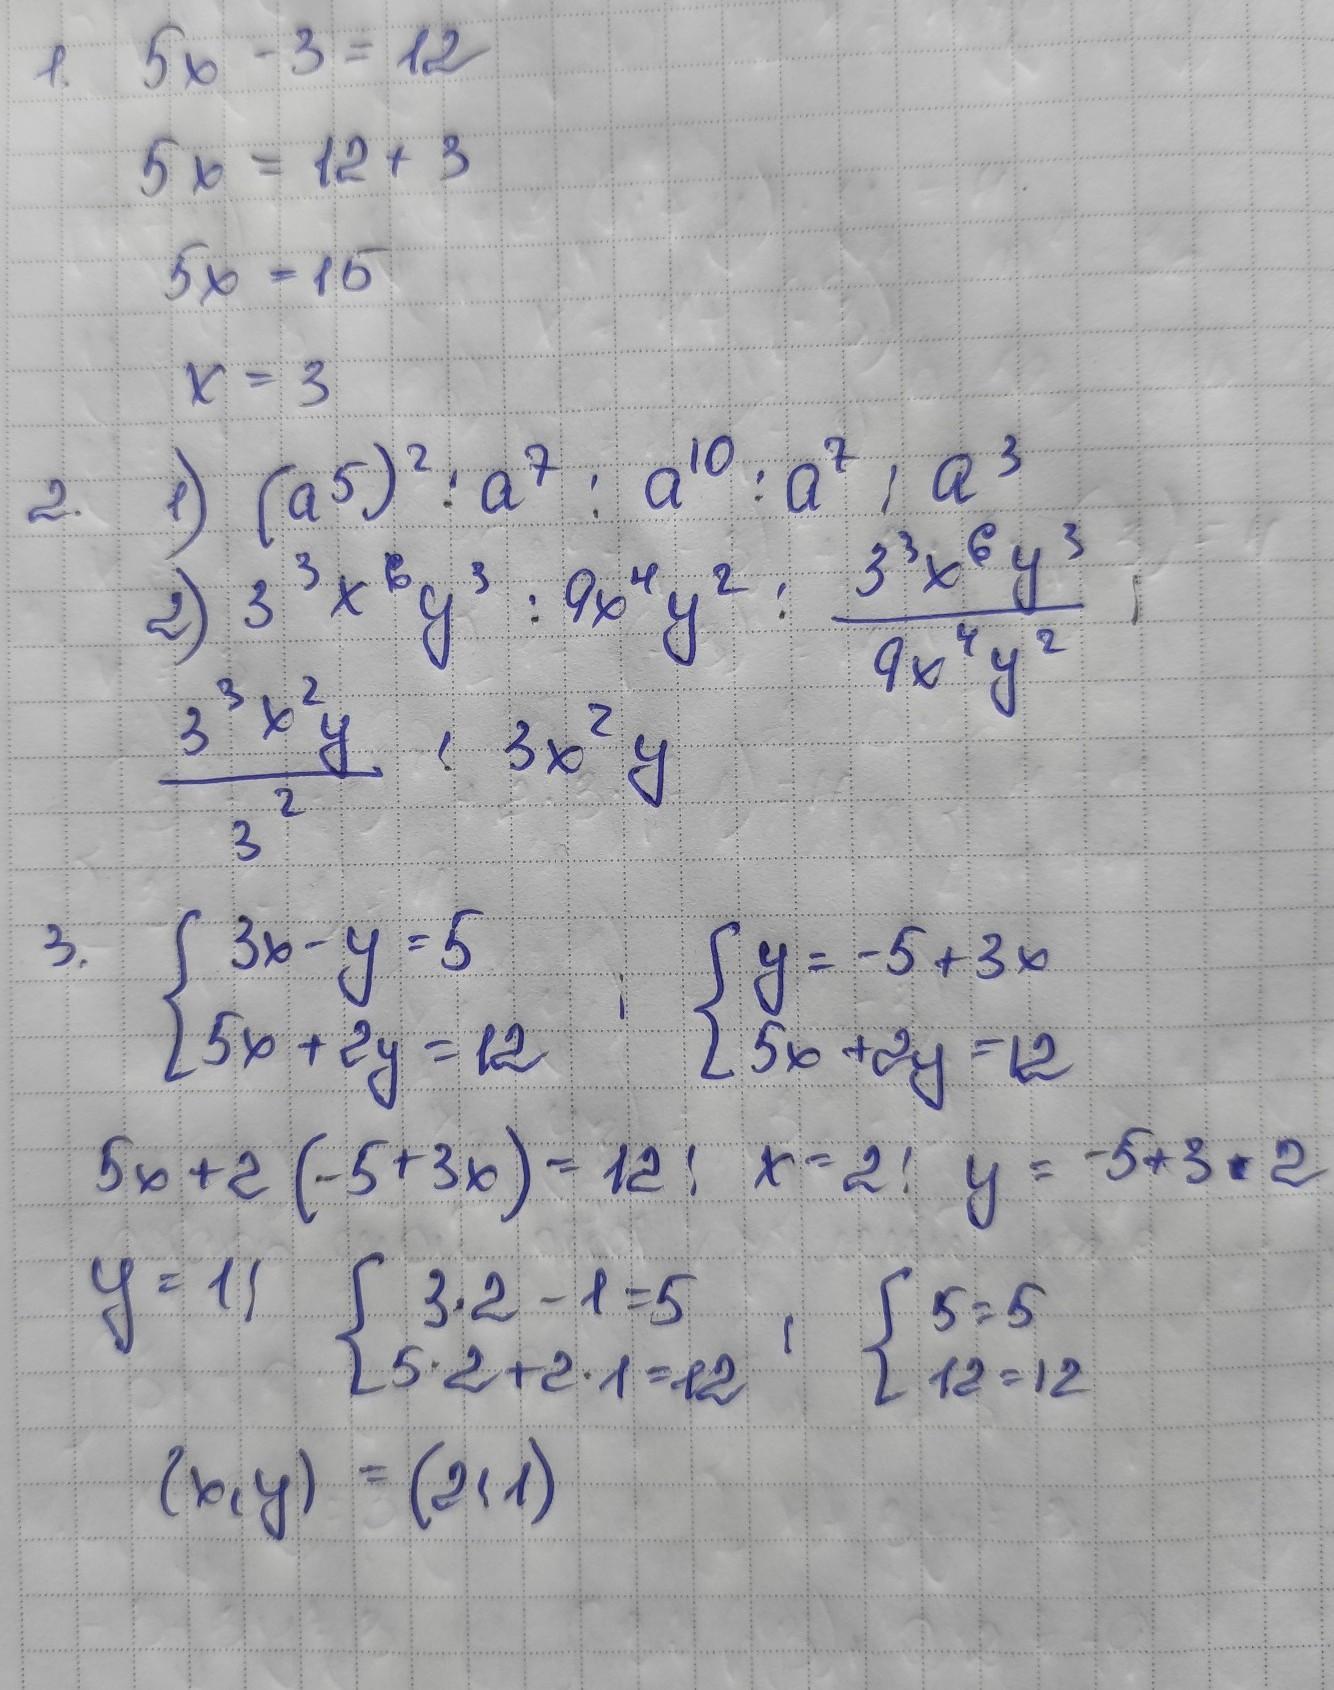 1. 5x - 3 = 12
5x = 12 + 3
5x = 15
x = 3
2. 1) (a⁵)² : a⁷ ; a¹⁰ : a⁷ ; a³
2) 3³x⁶y³ : 9x⁴y² ; 3³x⁶y³ / 9x⁴y² ;
3³x²y / 3² ; 3x²y
3. { 3x - y = 5 ; { y = -5 + 3x
{ 5x + 2y = 12 { 5x + 2y = 12
5x + 2 (-5 + 3x) = 12 ; x = 2 ; y = -5 + 3 · 2
y = 1 ; { 3·2 - 1 = 5 ; { 5 = 5
{ 5·2 + 2·1 = 12 { 12 = 12
(x, y) = (2, 1)